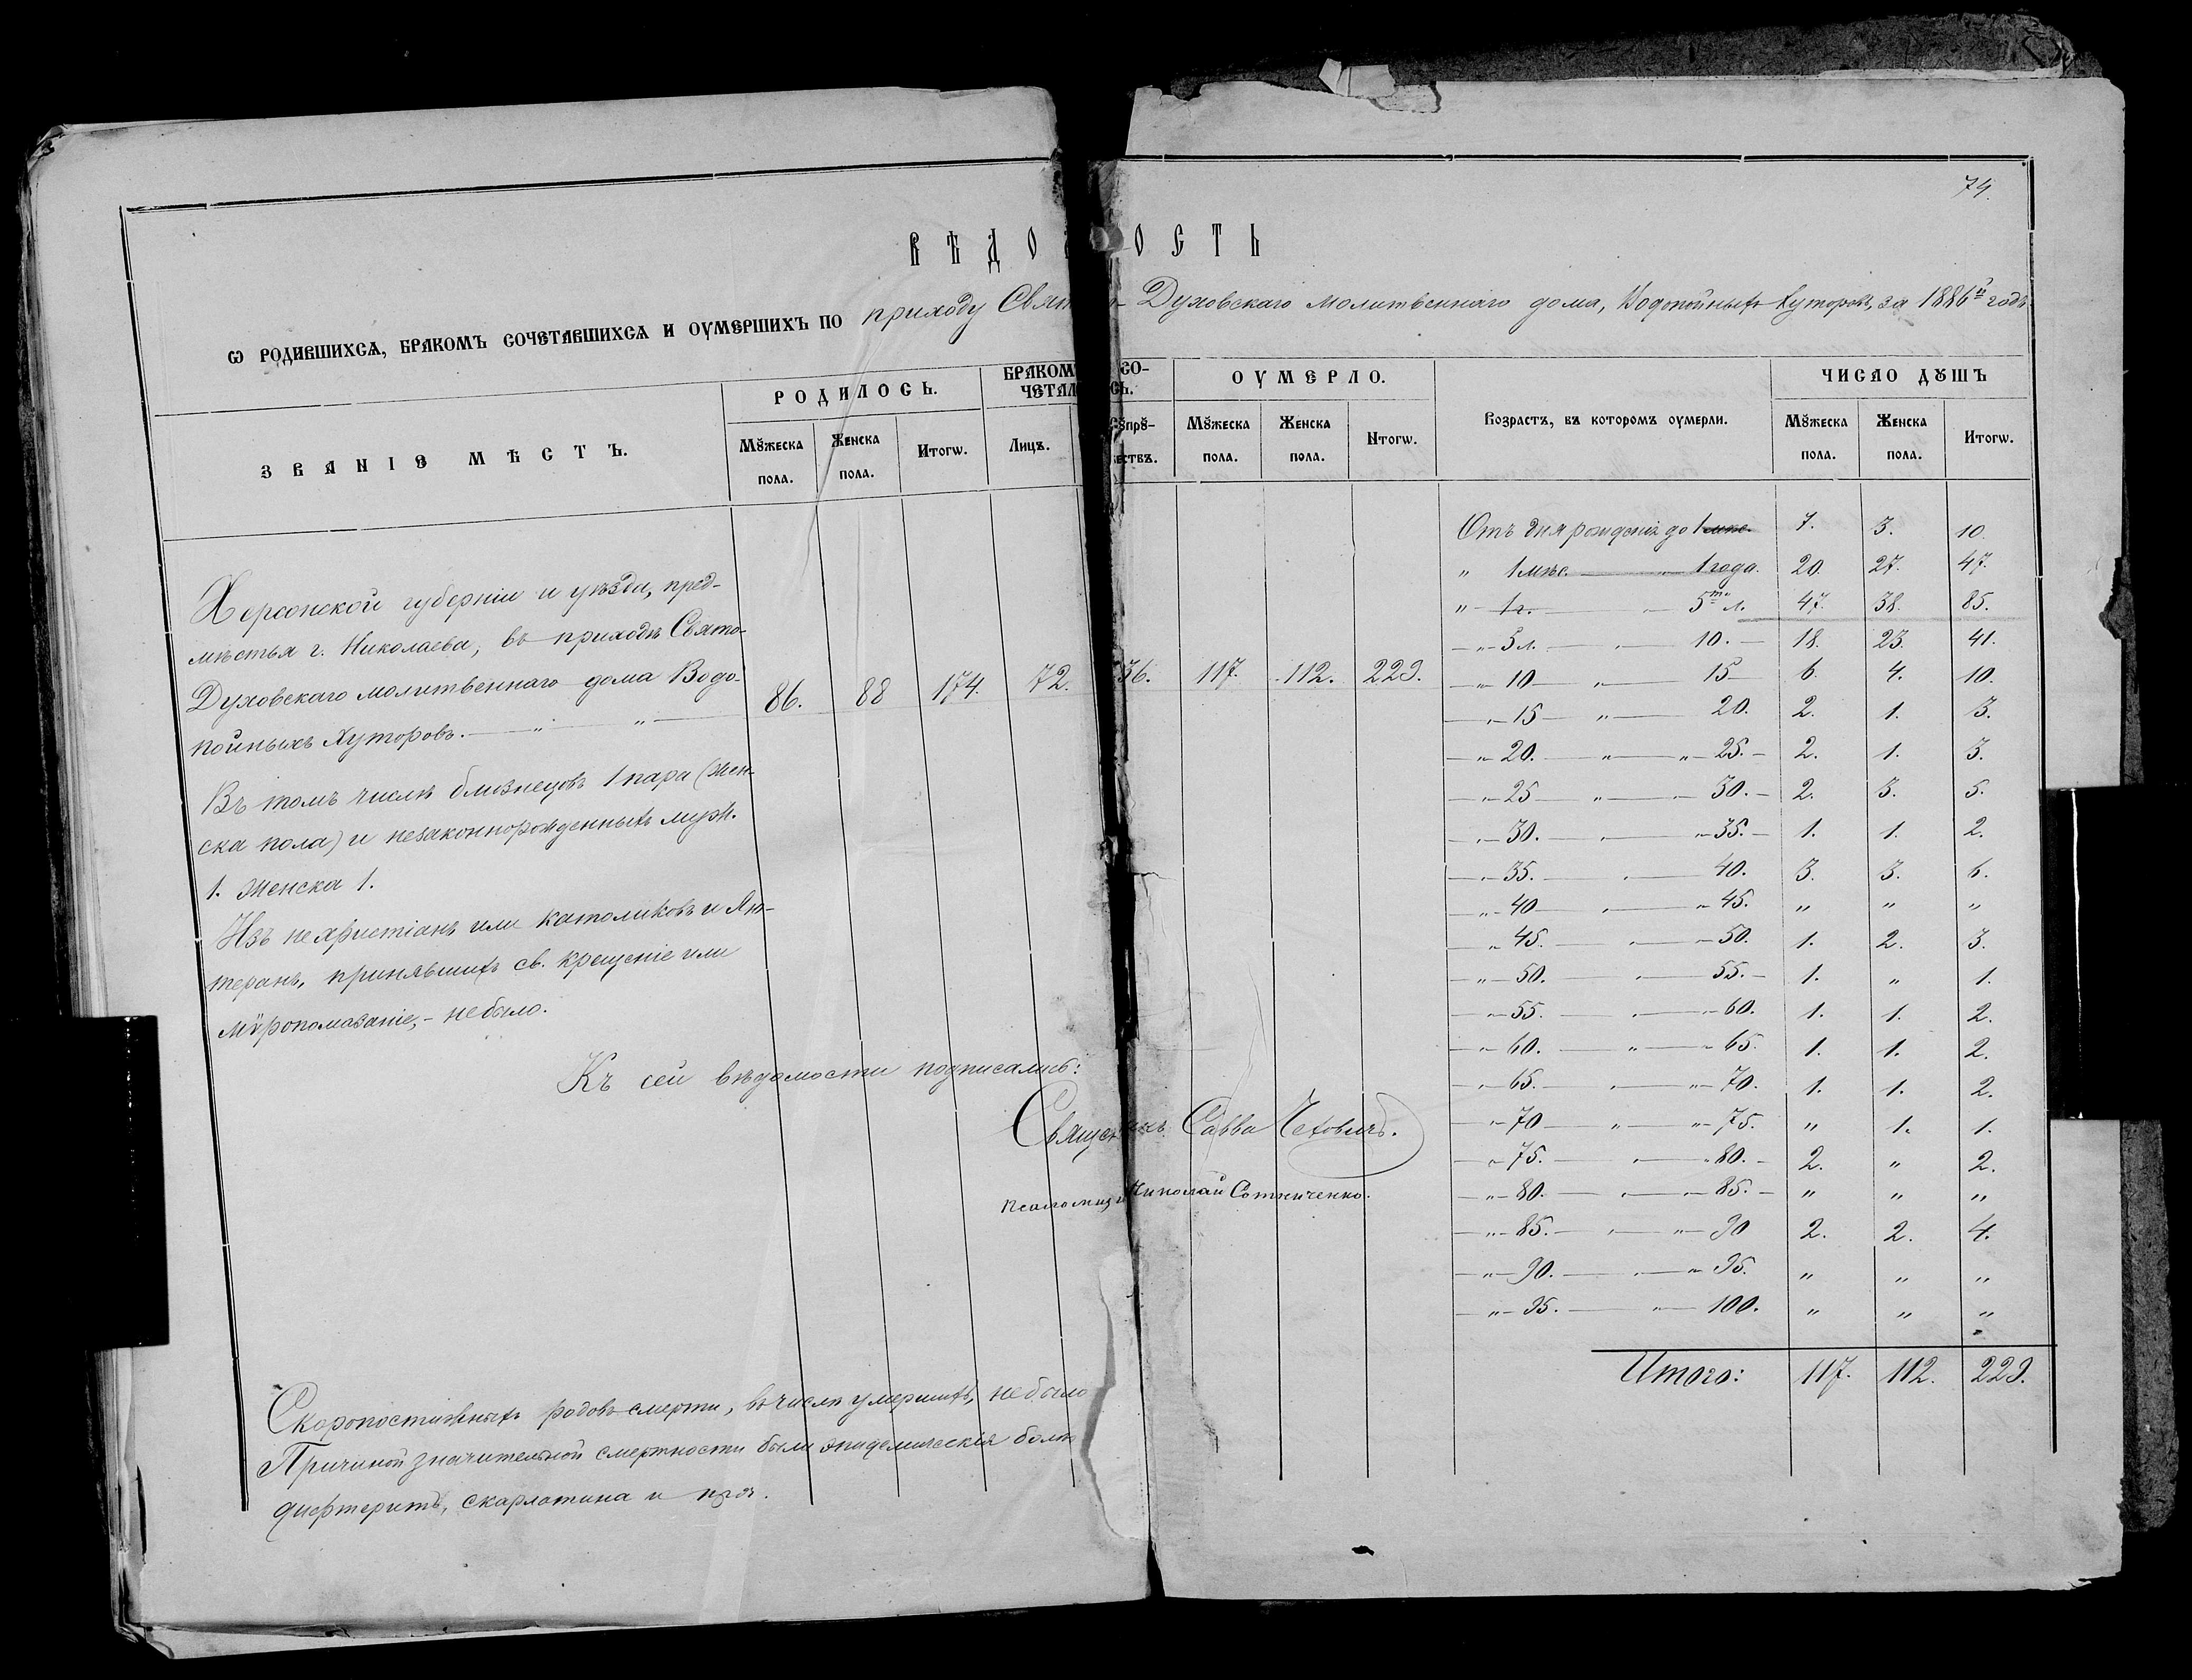 74.
ВѢДОМОСТЬ
Ѡ РОДИВШИХСѦ, БРАКОМЪ СОЧЕТАВШИХСѦ И ОУМЕРШИХЪ ПО приходу Свято-Духовскаго молитвеннаго дома, Водопойныхъ Хуторовъ, за 1886й годъ.
ЗВАНІЕ МѢСТЪ.
РОДИЛОСЬ.
БРАКОМЪ СО-
ЧЕТАЛОСЬ.
ОУМЕРЛО.
Возрастъ, въ которомъ оумерли.
ЧИСЛО ДꙊШЪ
Мꙋжеска пола. Женска пола. Итогѡ. Лицъ. Сꙋпрꙋ-жествъ. Мꙋжеска пола. Женска пола. Итогѡ. Мꙋжеска пола. Женска пола. Итогѡ.
Херсонской губерніи и уѣзда, пред-
мѣстья г. Николаева, въ приходѣ Свято-
Духовскаго молитвеннаго дома Водо-
пойныхъ Хуторовъ. — " — " —
86. 88 174. 72. 36. 117. 112. 229.
Въ томъ числѣ близнецовъ 1 пара (жен-
ска пола) и незаконнорожденныхъ муж.
1. Женска 1.
Изъ нехристіанъ или католиковъ и Лю-
теранъ, принявшихъ св. крещеніе или
мѵропомазаніе, - небыло.
Къ сей вѣдомости подписались:
Священникъ Савва Чехович.
Псаломщикъ Николай Сотниченко.
Скоропостижныхъ родовъ смерти, въ числѣ умершихъ, небыло
Причиной значительной смертности были эпидемическія болѣ
дифтеритъ, скарлатина и проч.
Отъ дня рожденія до 1 мѣс. 7. 3. 10.
" 1 мѣс. — " 1 года. 20. 27. 47.
" 1 г. — 5ти л. 47. 38. 85.
" 5 л. — " — 10. 18. 23. 41.
" 10 — " — 15 6. 4. 10.
" 15 — " — 20. 2. 1. 3.
" 20. — " — " 25. 2. 1. 3.
" 25 — " — 30. 2. 3. 5.
" 30. — " — " 35. 1. 1. 2.
" 35. — " — 40. 3. 3. 6.
" 40 — " — " 45. " " "
" 45. — " — 50. 1. 2. 3.
" 50. — " — 55. 1. " 1.
" 55. — " — " 60. 1. 1. 2.
" 60. — " — " 65. 1. 1. 2.
" 65. — " — " 70. 1. 1. 2.
" 70 — " — " 75. " 1. 1.
" 75. — " — " 80. 2. " 2.
" 80. — " — " 85. " " "
" 85. — " — " 90 2. 2. 4.
" 90. — " — " 95. " " "
" 95. — " — 100. " " "
Итого: 117. 112. 229.